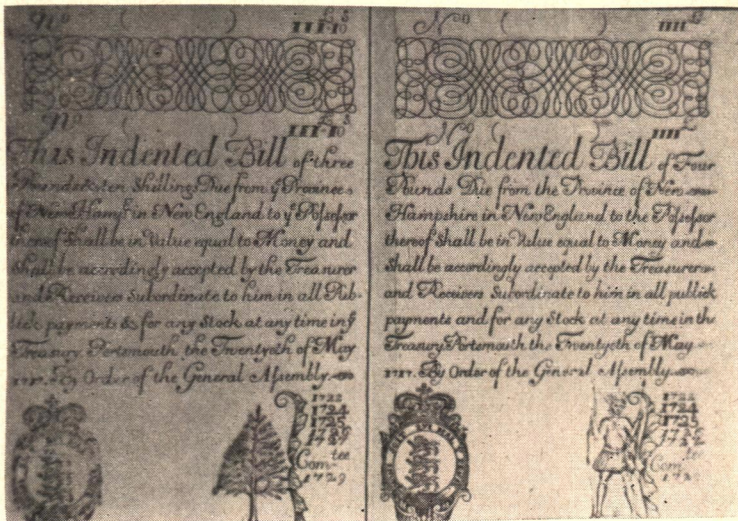 No
III£-10s
No
III-10
This Indented Bill of three
Pounds & ten Shillings Due from ye Province
of New Hampr. in New England to ye Possessor
thereof Shall be in Value equal to Money and
Shall be accordingly accepted by the Treasurer
and Receivers Subordinate to him in all Pub-
lick payments & for any Stock at any time in ye
Treasury. Portsmouth the Twentyeth of May
1717. By Order of the General Assembly
1722
1724
1725
1729
Com tee
1729
No
IIII£
No
IIII£
This Indented Bill of Four
Pounds Due from the Province of New
Hampshire in New England to the Possessor
thereof Shall be in Value equal to Money and
Shall be accordingly accepted by the Treasurer
and Receivers Subordinate to him in all publick
payments and for any Stock at any time in the
Treasury. Portsmouth the Twentyeth of May
1717. By Order of the General Assembly
1722
1724
1725
Com tee
172